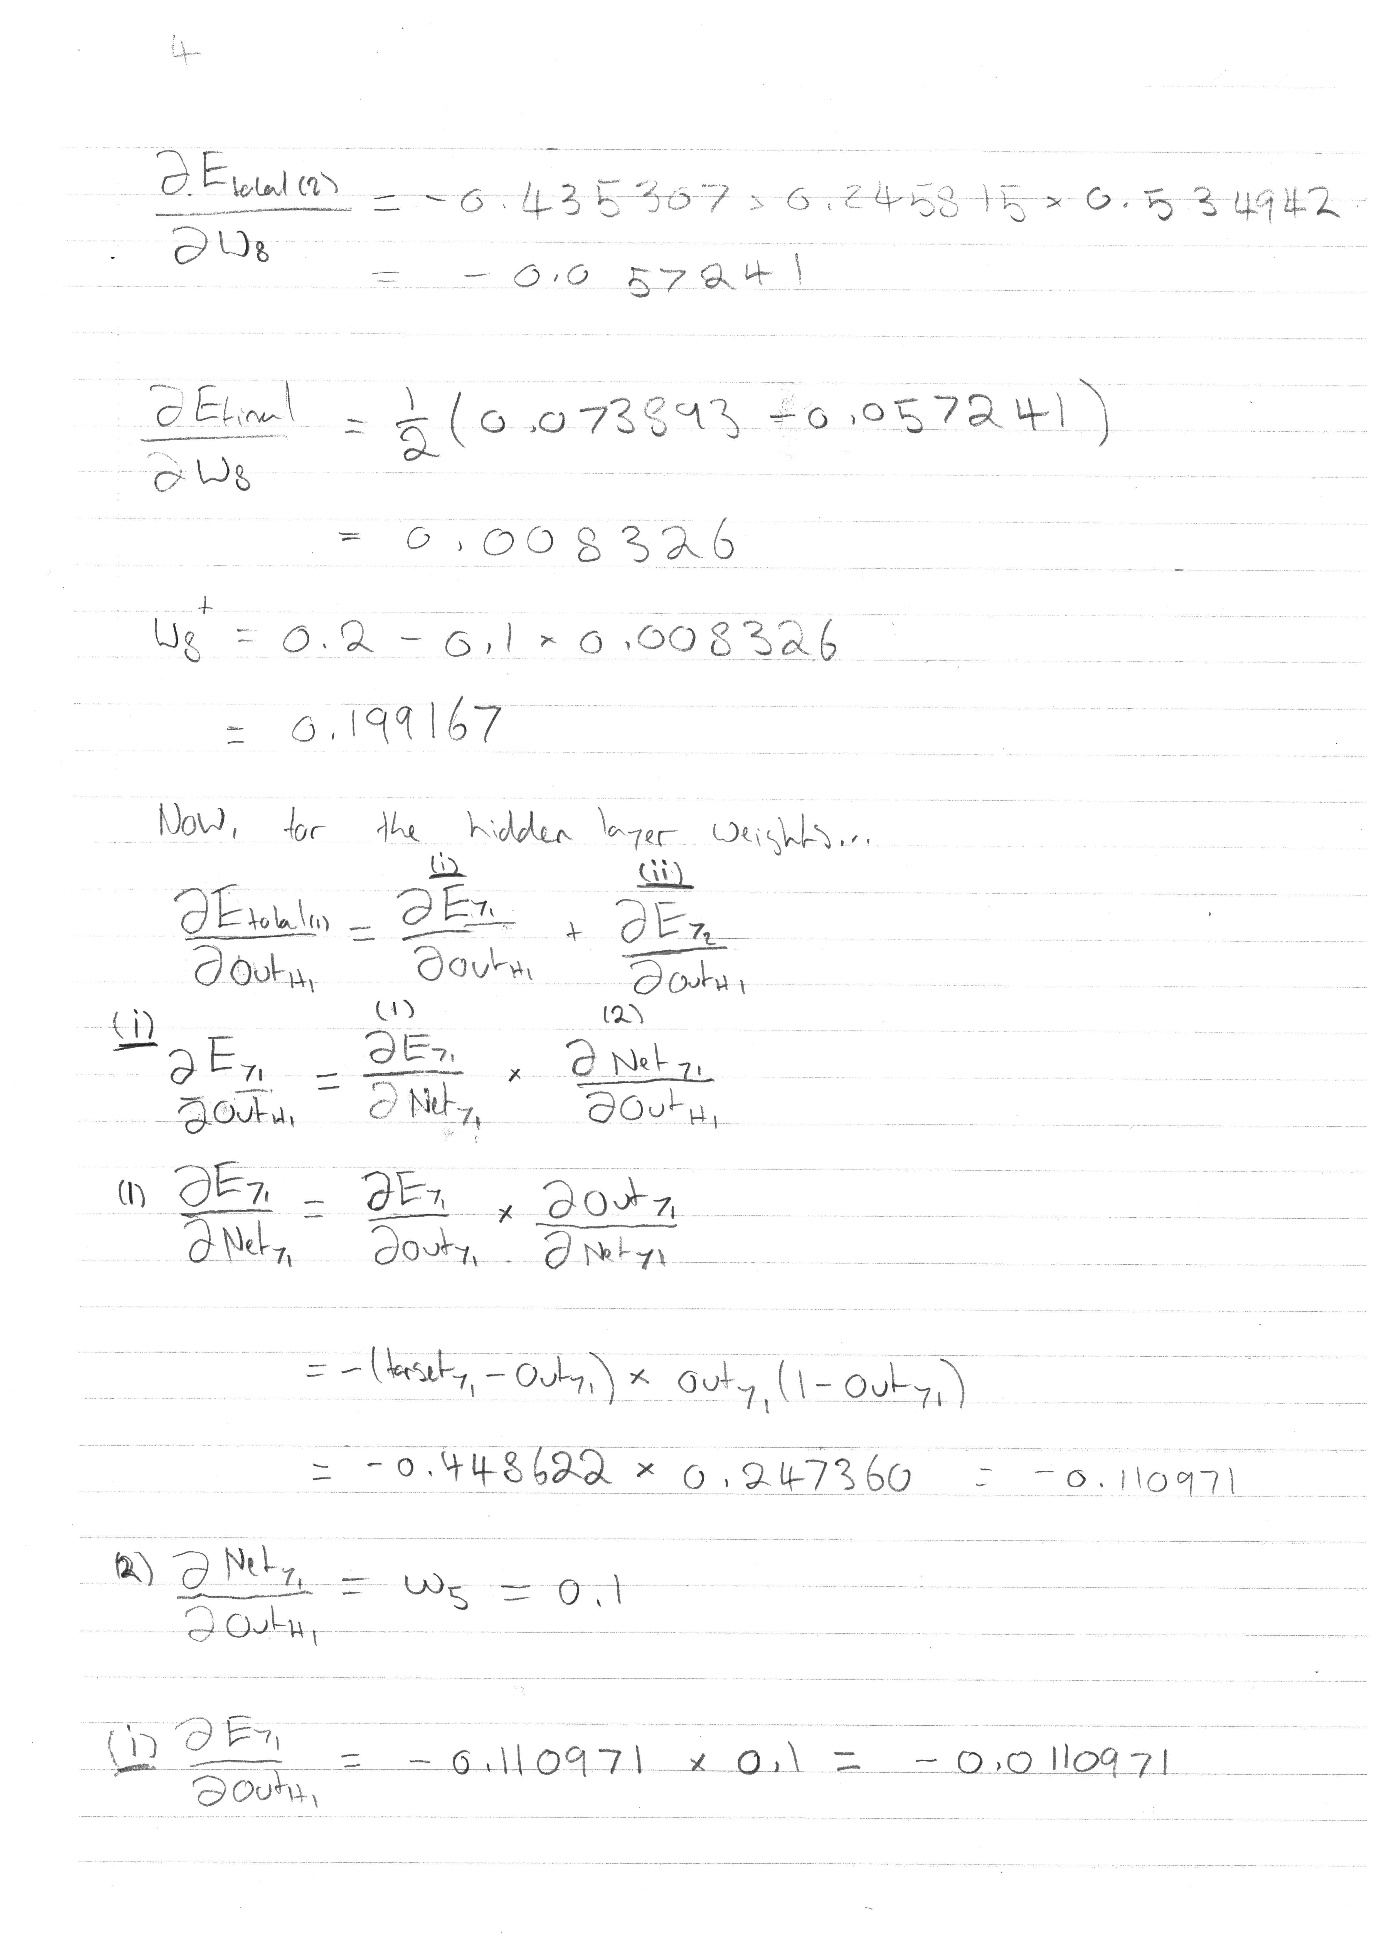 4
∂E_total(2)/∂W_8 = -0.435307 × 0.245815 × 0.534942
= -0.057241
∂E_final/∂W_8 = 1/2 (0.073893 - 0.057241)
= 0.008326
W_8^+ = 0.2 - 0.1 × 0.008326
= 0.199167
Now, for the hidden layer weights...
(i) (ii)
∂E_total(1)/∂Out_H1 = ∂E_y1/∂Out_H1 + ∂E_y2/∂Out_H1
(1) (2)
(i) ∂E_y1/∂Out_H1 = ∂E_y1/∂Net_y1 × ∂Net_y1/∂Out_H1
(1) ∂E_y1/∂Net_y1 = ∂E_y1/∂Out_y1 × ∂Out_y1/∂Net_y1
= -(target_y1 - Out_y1) × Out_y1 (1 - Out_y1)
= -0.448622 × 0.247360 = -0.110971
(2) ∂Net_y1/∂Out_H1 = W_5 = 0.1
(i) ∂E_y1/∂Out_H1 = -0.110971 × 0.1 = -0.0110971